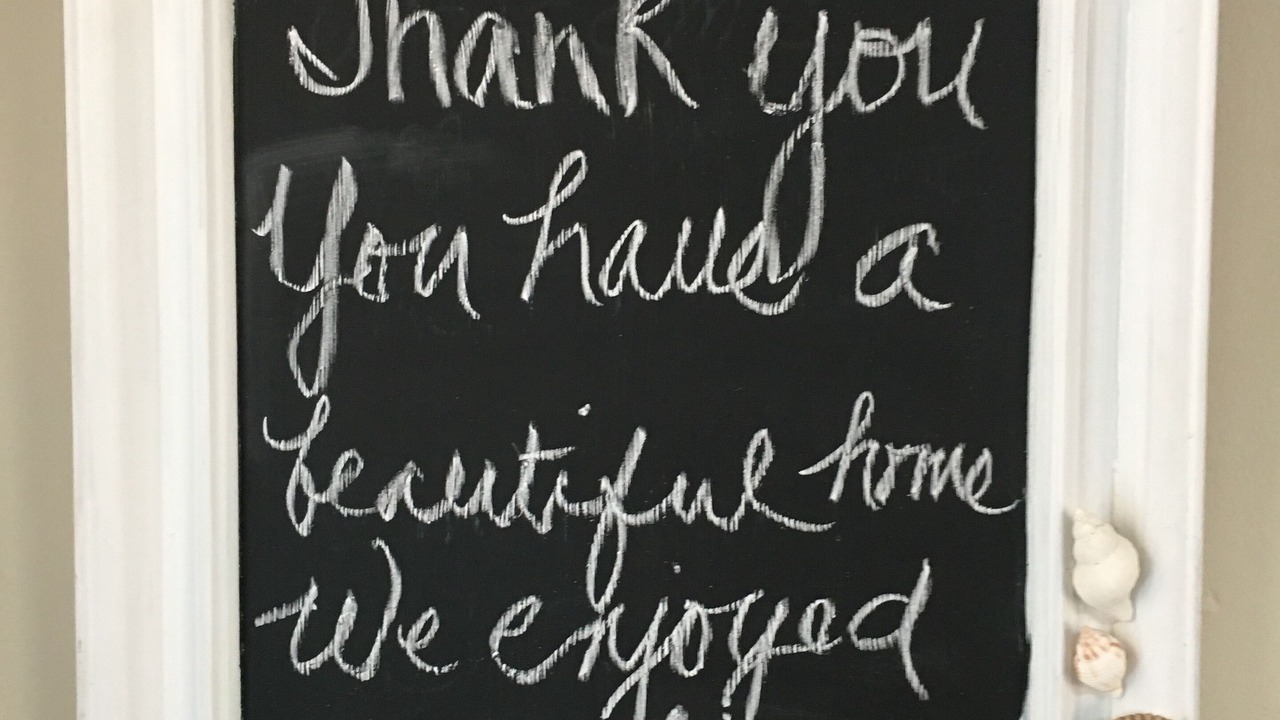 Thank you
You have a
beautiful home
We enjoyed